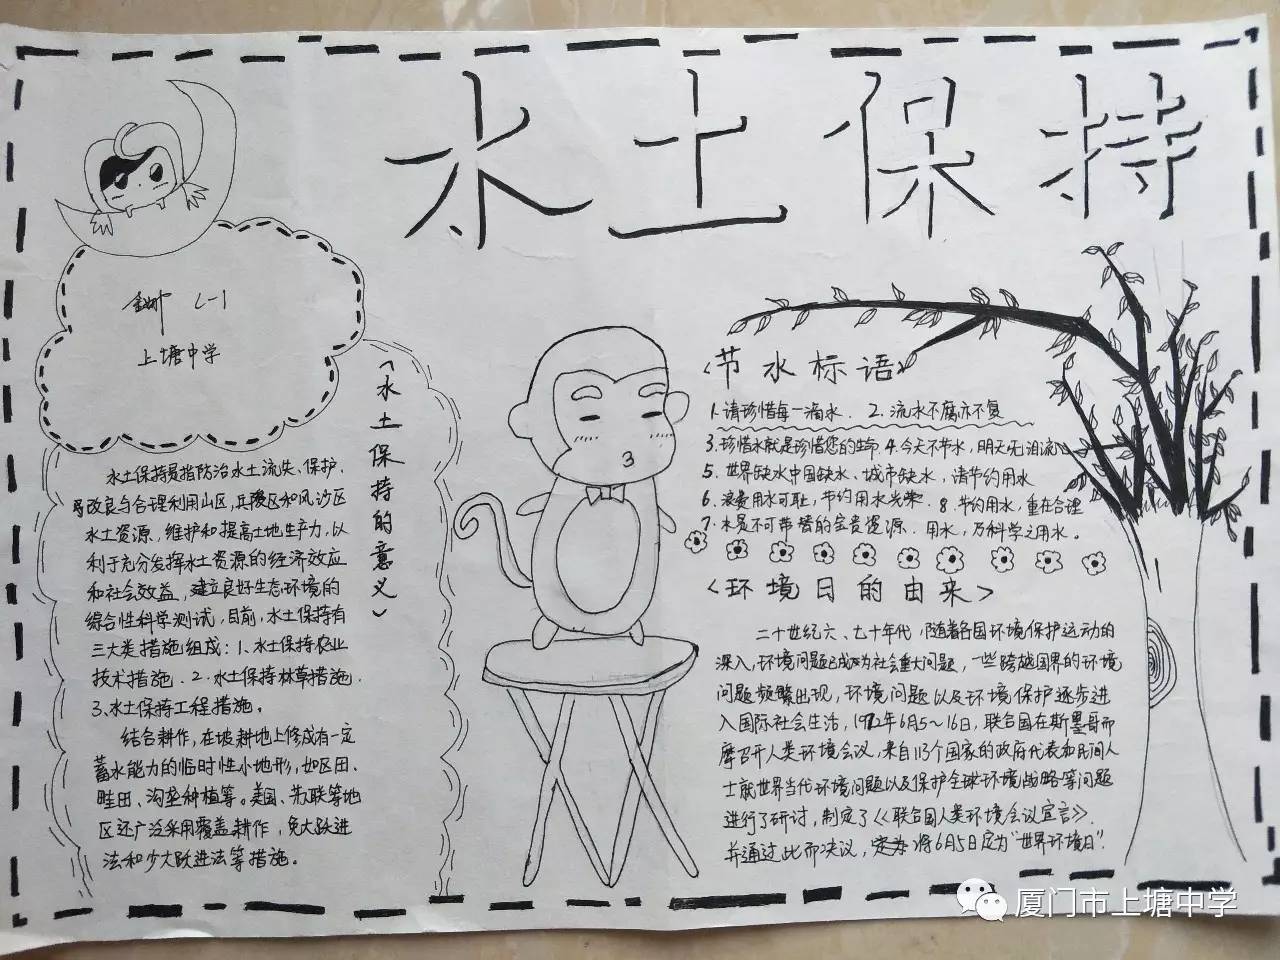 水土保持
L-1
上塘中学
《水土保持的意义》
水土保持是指防治水土流失、保护、
改良与合理利用山区,丘陵区和风沙区
水土资源,维护和提高土地生产力,以
利于充分发挥水土资源的经济效应
和社会效益,建立良好生态环境的
综合性科学测试,目前,水土保持有
三大类措施组成:1、水土保持农业
技术措施.2、水土保持林草措施.
3、水土保持工程措施。
结合耕作,在坡耕地上修成有一定
蓄水能力的临时性小地形,如区田、
畦田、沟垄种植等。美国、苏联等地
区还广泛采用覆盖耕作,免大跃进
法和少大跃进法等措施。
《节水标语》
1.请珍惜每一滴水. 2.流水不腐亦不复
3.珍惜水就是珍惜您的生命.4.今天不节水,明天无泪流
5.世界缺水中国缺水、城市缺水,请节约用水
6.浪费用水可耻,节约用水光荣. 8.节约用水,重在合理
7.水是不可替替的宝贵资源. 用水,万科学之用水。
<环境日的由来>
二十世纪六、七十年代,随着各国环境保护运动的
深入,环境问题已成为社会重大问题,一些跨越国界的环境
问题频繁出现,环境问题以及环境保护逐步进
入国际社会生活,1972年6月5~16日,联合国在斯墨哥而
摩召开人类环境会议,来自113个国家的政府代表和民间人
士就世界当代环境问题以及保护全球环境战略等问题
进行了研讨,制定了《联合国人类环境会议宣言》.
并通过此而决议,将6月5日定为"世界环境日".
厦门市上塘中学